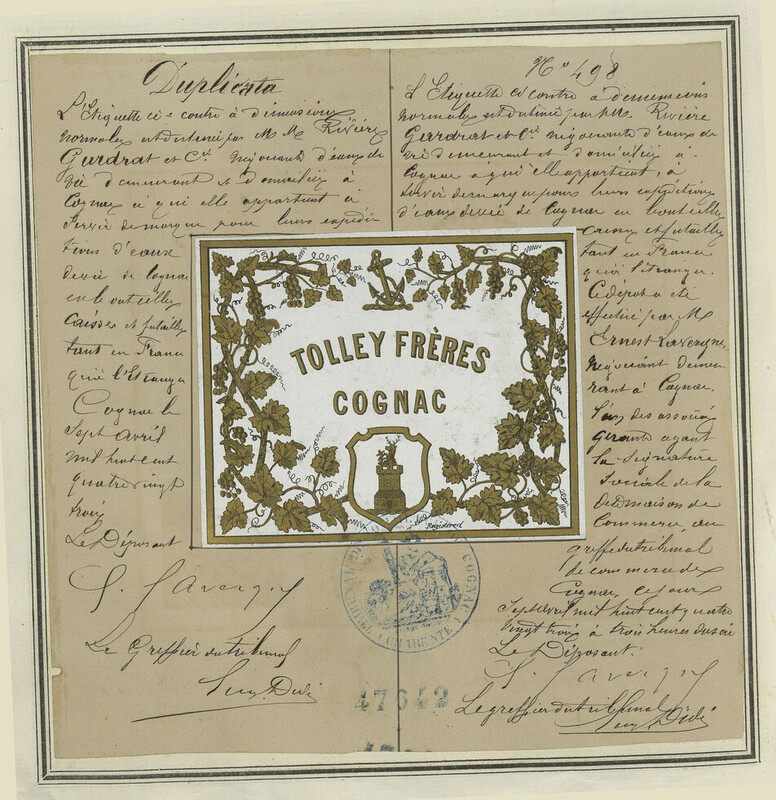 Duplicata
L'Etiquette ci-contre à dimensions
normales est destinée par M M Rivière
Gardrat et Cie négociants d'eaux de
vie demeurant et domiciliés à
Cognac à qui elle appartient à
servir de marque pour leurs expédi
tions d'eaux
de vie de Cognac
en bouteilles
caisses et futailles
tant en France
qu'à l'Etranger
Cognac le
Sept avril
mil huit cent
quatre vingt
trois
Le Déposant
Le Greffier du tribunal
No 498
L'Etiquette ci contre à dimensions
normales est destinée par MM. Rivière
Gardrat et Cie négociants d'eaux de
vie demeurant et domiciliés à
Cognac à qui elle appartient, à
servir de marque pour leurs expéditions
d'eaux de vie de Cognac en bouteilles
caisses et futailles
tant en France
qu'à l'étranger.
Ce dépôt a été
effectué par M.
Ernest Lavergne,
négociant demeu
rant à Cognac.
l'un des associés
gérants ayant
la signature
sociale de la
dite maison de
Commerce, au
greffe du tribunal
de commerce de
Cognac, ce jour
sept avril mil huit cent quatre
vingt trois à trois heures du soir
Le Déposant.
Le greffier du tribunal
TOLLEY FRÈRES
COGNAC
COGNAC (CHARENTE)
47642